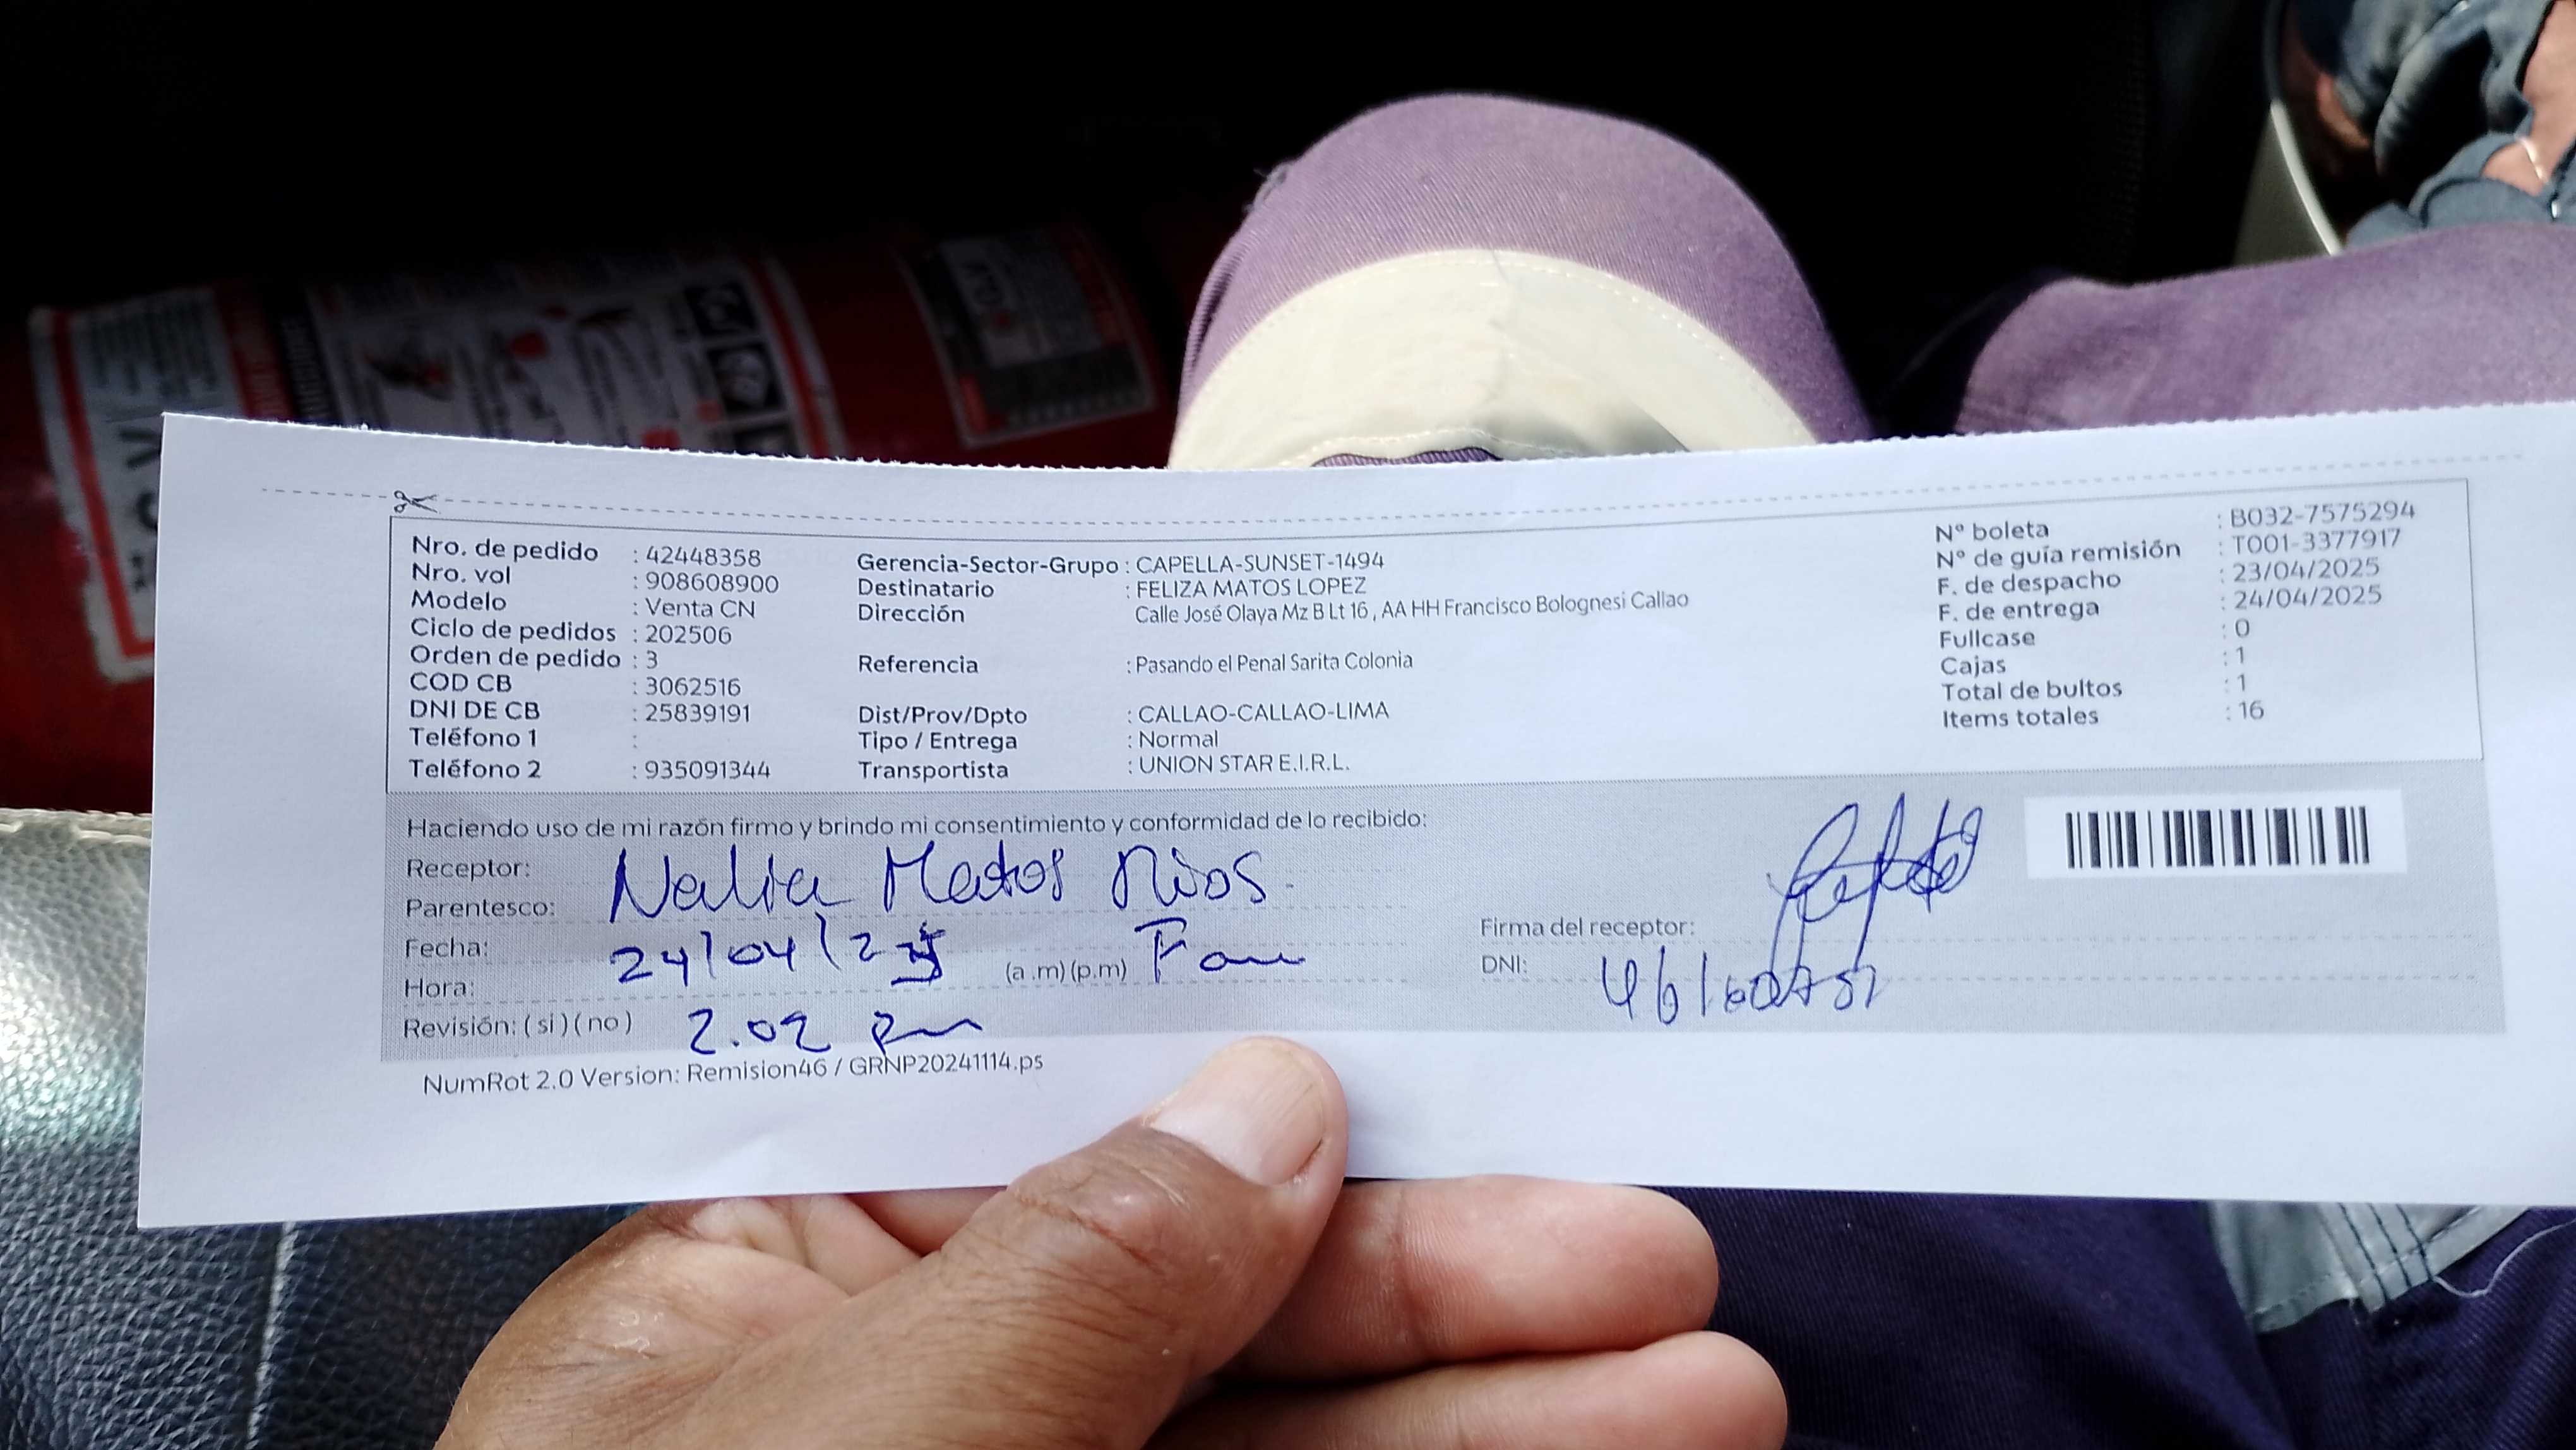 Nro. de pedido : 42448358
Nro. vol : 908608900
Modelo : Venta CN
Ciclo de pedidos : 202506
Orden de pedido : 3
COD CB : 3062516
DNI DE CB : 25839191
Teléfono 1 :
Teléfono 2 : 935091344
Gerencia-Sector-Grupo : CAPELLA-SUNSET-1494
Destinatario : FELIZA MATOS LOPEZ
Dirección Calle José Olaya Mz B Lt 16 , AA HH Francisco Bolognesi Callao
Referencia : Pasando el Penal Sarita Colonia
Dist/Prov/Dpto : CALLAO-CALLAO-LIMA
Tipo / Entrega : Normal
Transportista : UNION STAR E.I.R.L.
N° boleta : B032-7575294
N° de guía remisión : T001-3377917
F. de despacho : 23/04/2025
F. de entrega : 24/04/2025
Fullcase : 0
Cajas : 1
Total de bultos : 1
Items totales : 16
Haciendo uso de mi razón firmo y brindo mi consentimiento y conformidad de lo recibido:
Receptor: Nalia Matos Rios
Parentesco:
Fecha: 24/04/25
Hora: (a .m) (p.m) Fam
Revisión: ( si ) ( no ) 2.02 pm
Firma del receptor:
DNI:
NumRot 2.0 Version: Remision46 / GRNP20241114.ps